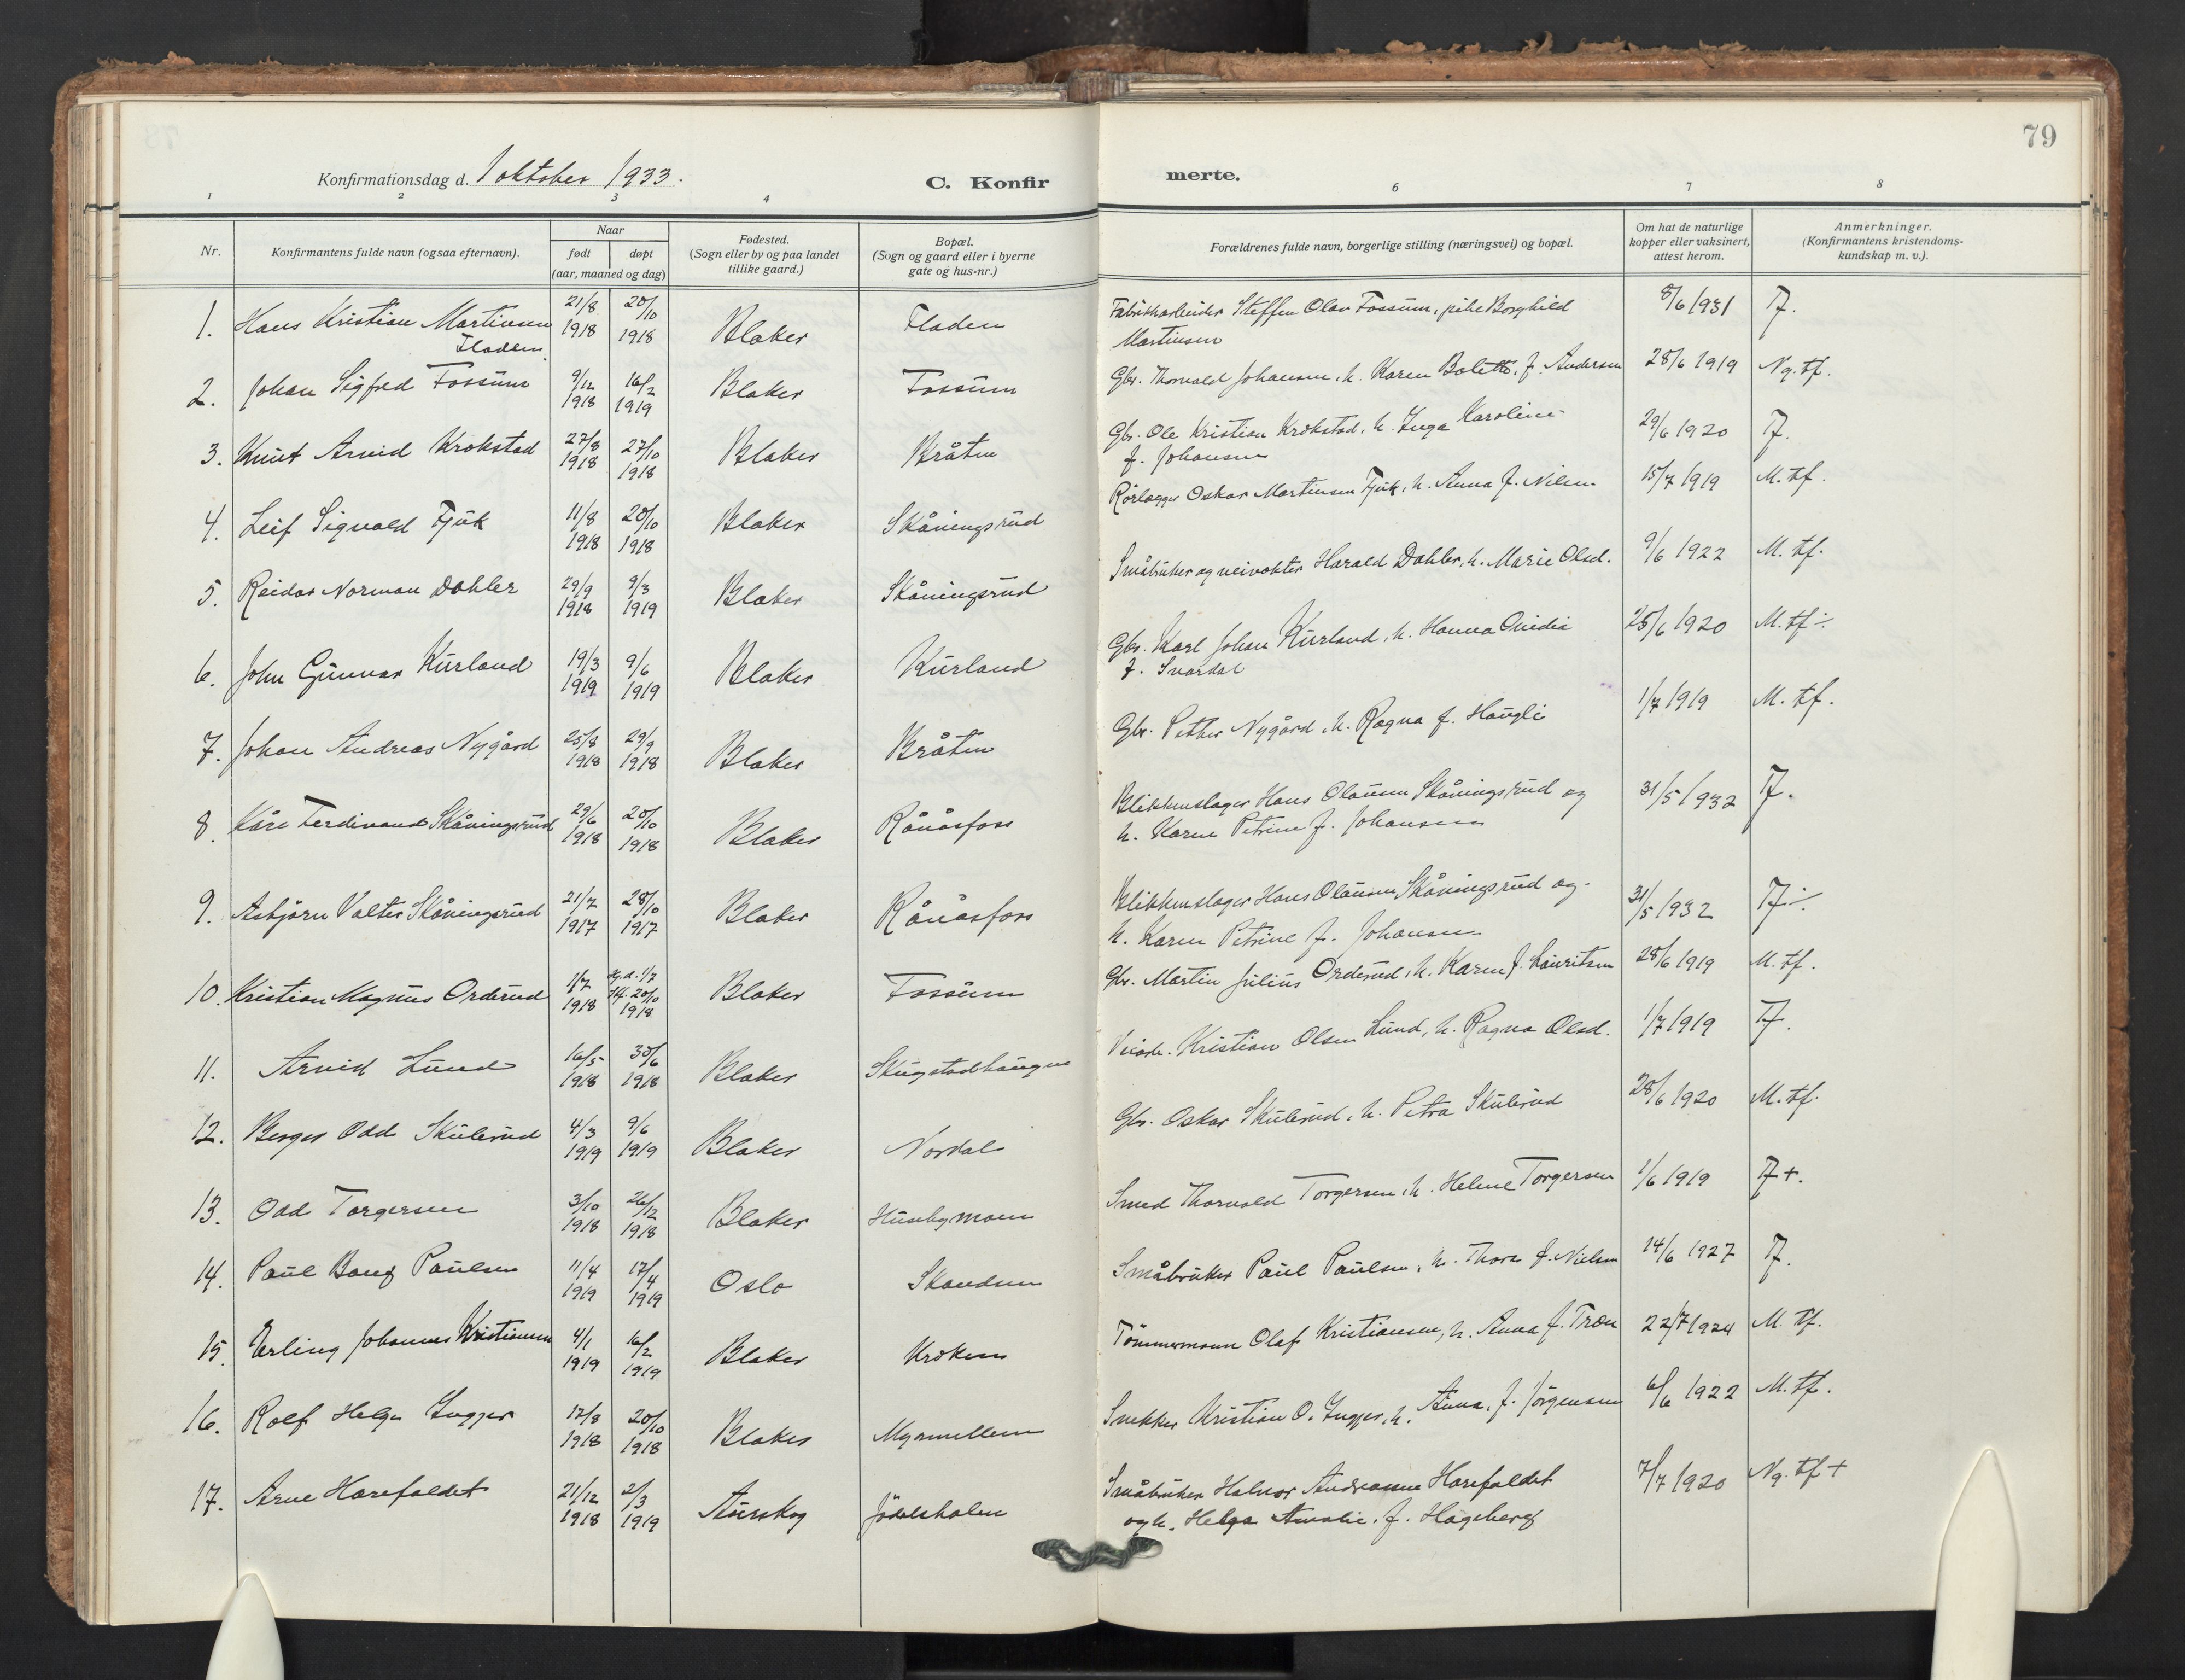 79
Konfirmationsdag d. 1 oktober 1933.
C. Konfirmerte.
1 2 3 4 6 7 8
Nr. | Konfirmantens fulde navn (ogsaa efternavn). | Naar født | døpt (aar, maaned og dag) | Fødested. (Sogn eller by og paa landet tillike gaard.) | Bopæl. (Sogn og gaard eller i byerne gate og hus-nr.) | Forældrenes fulde navn, borgerlige stilling (næringsvei) og bopæl. | Om hat de naturlige kopper eller vaksinert, attest herom. | Anmerkninger. (Konfirmantens kristendoms-kundskap m. v.).
1. Hans Kristian Martinsen Fladen 21/8 1918 20/10 1918 Blaker Fladen Fabrikkarbeider Steffen Olav Fossum, pike Borghild Martinsen 8/6 1931 Tf.
2. Johan Sigfred Fossum 9/12 1918 16/2 1919 Blaker Fossum Gbr. Thorvald Johansen, h. Karen Bolette, f. Andersen 28/6 1919 Ng. tf.
3. Knut Arvid Krokstad 27/8 1918 27/10 1918 Blaker Bråten Gbr. Ole Kristian Krokstad, h. Inga Karoline f. Johansen 29/6 1920 Tf.
4. Leif Sigvald Fjuk 11/8 1918 20/10 1918 Blaker Skåningsrud Rørlægger Oskar Martinsen Fjuk, h. Anna f. Nilsen 15/7 1919 M. tf.
5. Reidar Norman Dahler 29/9 1918 9/3 1919 Blaker Skåningsrud Småbruker og veivokter Harald Dahler, h. Marie Olsd. 9/6 1922 M. tf.
6. John Gunnar Kurland 19/3 1919 9/6 1919 Blaker Kurland Gbr. Karl Johan Kurland, h. Hanna Ovidia f. Svardal 25/6 1920 M. tf ÷
7. Johan Andreas Nygård 25/8 1918 29/9 1918 Blaker Bråten Gbr. Petter Nygård, h. Ragna f. Haugli 1/7 1919 M. tf.
8. Kåre Ferdinand Skåningsrud 29/6 1918 20/10 1918 Blaker Rånåsfoss Blikkenslager Hans Olausen Skåningsrud og h. Karen Petrine f. Johansen 31/5 1932 Tf.
9. Asbjørn Valter Skåningsrud 21/7 1917 28/10 1917 Blaker Rånåsfoss Blikkenslager Hans Olausen Skåningsrud og h. Karen Petrine f. Johansen 31/5 1932 Tf ÷
10. Kristian Magnus Orderud 1/7 1918 Hj. d. 1/7 Stf. 20/10 1918 Blaker Fossum Gbr. Martin Julius Orderud, h. Karen f. Lauritsen 28/6 1919 M. tf.
11. Arvid Lund 16/5 1918 30/6 1918 Blaker Skugstadhaugen Kristian Olsen Lund, h. Ragna Olsd. 1/7 1919 Tf.
12. Berger Odd Skulerud 4/3 1919 9/6 1919 Blaker Nordal Gbr. Oskar Skulerud, h. Petra Skulerud 28/6 1920 M. tf.
13. Odd Torgersen 3/10 1918 26/12 1918 Blaker Husebymoen Smed Thorvald Torgersen, h. Helene Torgersen 1/6 1919 Tf +.
14. Paul Bang Paulsen 11/4 1919 17/4 1919 Oslo Skandsen Småbruker Paul Paulsen, h. Thora f. Nielsen 14/6 1927 Tf.
15. Erling Johannes Kristiansen 4/1 1919 16/2 1919 Blaker Kroken Tømmermann Olaf Kristiansen, h. Anna f. Træn 22/7 1924 M. tf.
16. Rolf Helge Ingjer 17/8 1918 20/10 1918 Blaker Myrmellem Snekker Kristian O. Ingjer, h. Anna, f. Jørgensen 6/6 1922 M. tf.
17. Arne Harefaldet 21/12 1918 2/3 1919 Aurskog Jødalsholen Småbruker Halvor Andreassen Harefaldet og h. Helga Amalie, f. Hageberg 7/7 1920 Ng. tf +